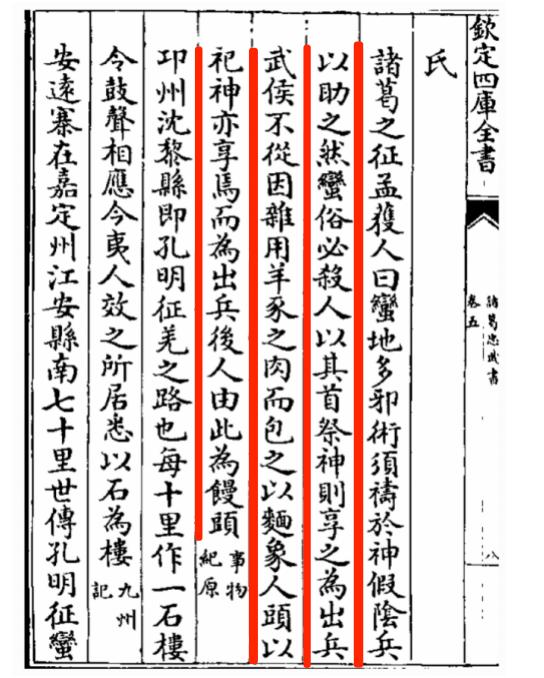 欽定四庫全書
諸葛忠武書
卷五
八
氏
諸葛之征孟獲人曰蠻地多邪術須禱於神假陰兵
以助之然蠻俗必殺人以其首祭神則享之為出兵
武侯不從因雜用羊豕之肉而包之以麵象人頭以
祀神亦享焉而為出兵後人由此為饅頭事物紀原
邛州沈黎縣即孔明征羌之路也每十里作一石樓
令鼓聲相應今夷人效之所居悉以石為樓九州記
安遠寨在嘉定州江安縣南七十里世傳孔明征蠻